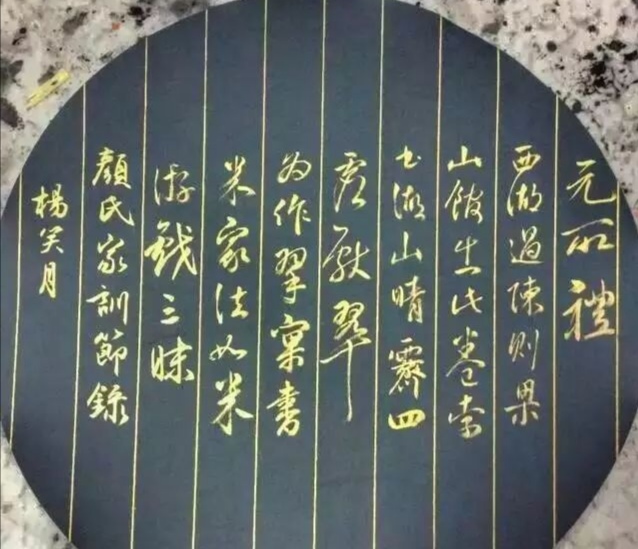 元所禮
西湖過陳則果
山館出此卷索
書湖山晴霽四
虛獻翠
為作草窠書
米家法如米
游戲三昧
顏氏家訓節錄
楊笑月